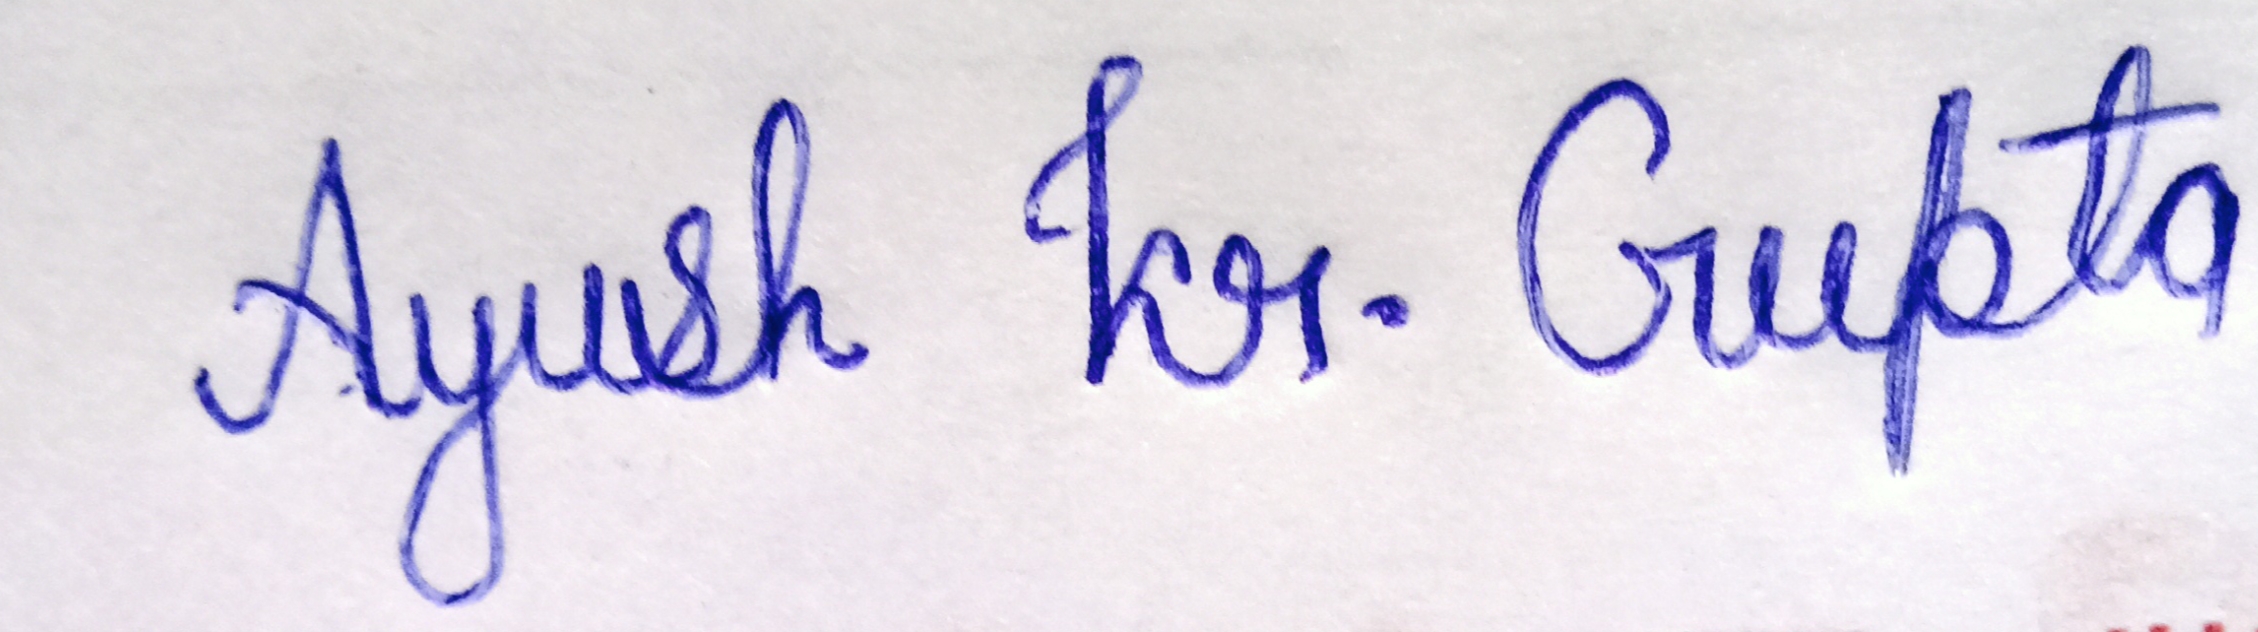 Ayush Kr. Gupta